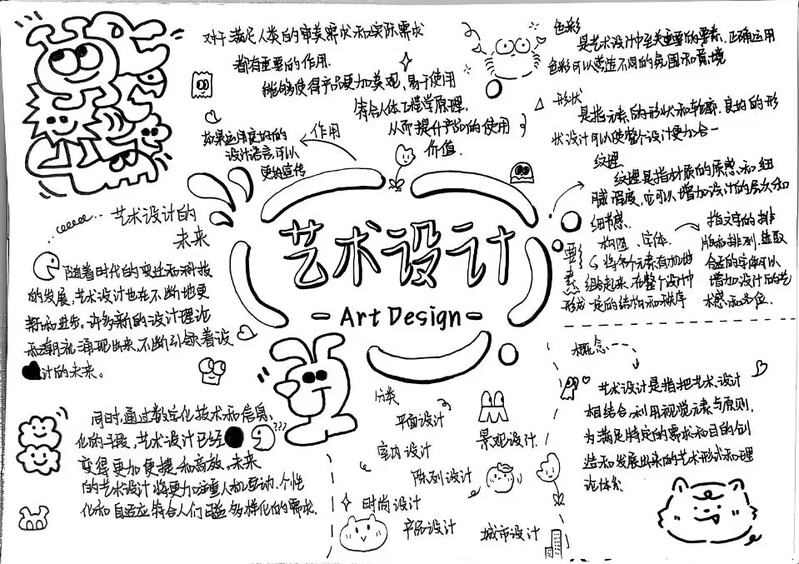 对于满足人类的审美需求和实际需求
都有重要的作用.
能够使得产品更加美观,易于使用
符合人体工程学原理.
从而提升产品的使用
价值.
作用
如果运用良好的
设计语言,可以
更好宣传
色彩
是艺术设计中至关重要的要素.正确运用
色彩可以营造不同的氛围和意境
形状
是指元素的形状和轮廓.良好的形
状设计可以使整个设计更加合一
纹理
纹理是指材质的质感和细
腻程度,它可以增加设计的层次和
细节感.
要素
构图
将各个元素有机地
组合起来.在整个设计中
形成一定的结构和秩序
字体
指文字的排
版和排列,选取
合适的字体可以
增加设计的艺
术感和品位.
艺术设计
- Art Design -
艺术设计的
未来
随着时代的变迁和科技
的发展,艺术设计也在不断地更
新和进步。许多新的设计理论
和潮流涌现出来,不断引领着设
计的未来。
同时,通过数字化技术和信息
化的手段,艺术设计已经
???
变得更加便捷和高效,未来
的艺术设计将更加注重人机互动、个性
化和自适应,符合人们日益多样化的需求.
分类
平面设计
室内设计
景观设计
陈列设计
时尚设计
产品设计
城市设计
概念
艺术设计是指把艺术、设计
相结合,利用视觉元素与原则,
为满足特定的需求和目的创
造和发展出来的艺术形式和理
论体系.